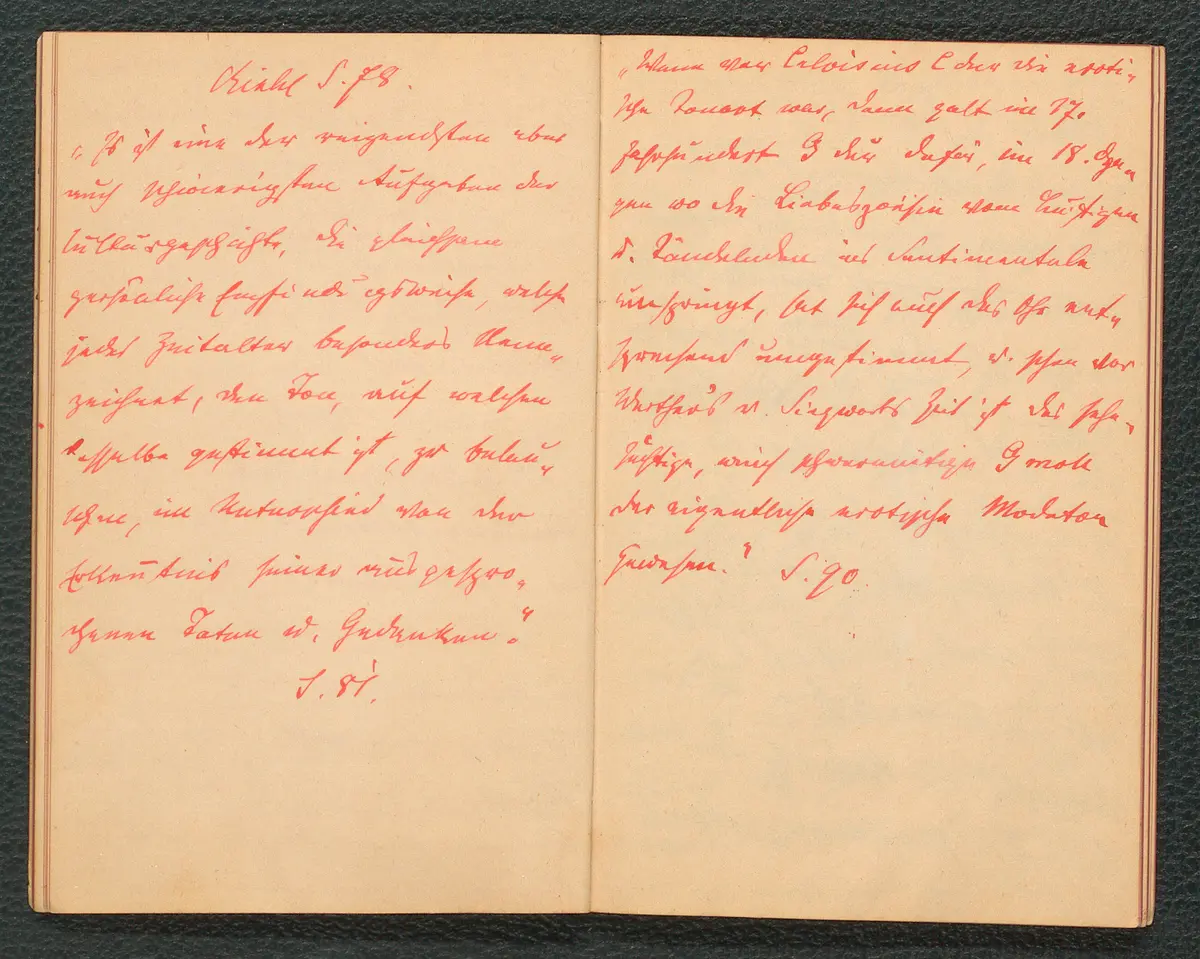 Riehl S. 78.
„Es ist eine der reizendsten aber
auch schwierigsten Aufgaben der
Culturgeschichte, die gleichsam
persönliche Empfindungsweise, welche
jedes Zeitalter besonders kenn-
zeichnet, den Ton, auf welchen
dasselbe gestimmt ist, zu belau-
schen, im Unterschied von der
Erkenntnis seiner ausgespro-
chenen Taten u. Gedanken."
S. 81.
„Wenn vor C dur die eroti-
sche Tonart war, dann galt im 17.
Jahrhundert G dur dafür, im 18. dage-
gen wo die Liebespoësie vom Lustigen
u. Tändelnden ins Sentimentale
umspringt, hat sich auch das Ohr ent-
sprechend umgestimmt, u. schon vor
Werther's u. Siegwarts Zeit ist das sehn-
süchtige, weich schwermütige G moll
der eigentliche erotische Modeton
gewesen." S. 90.